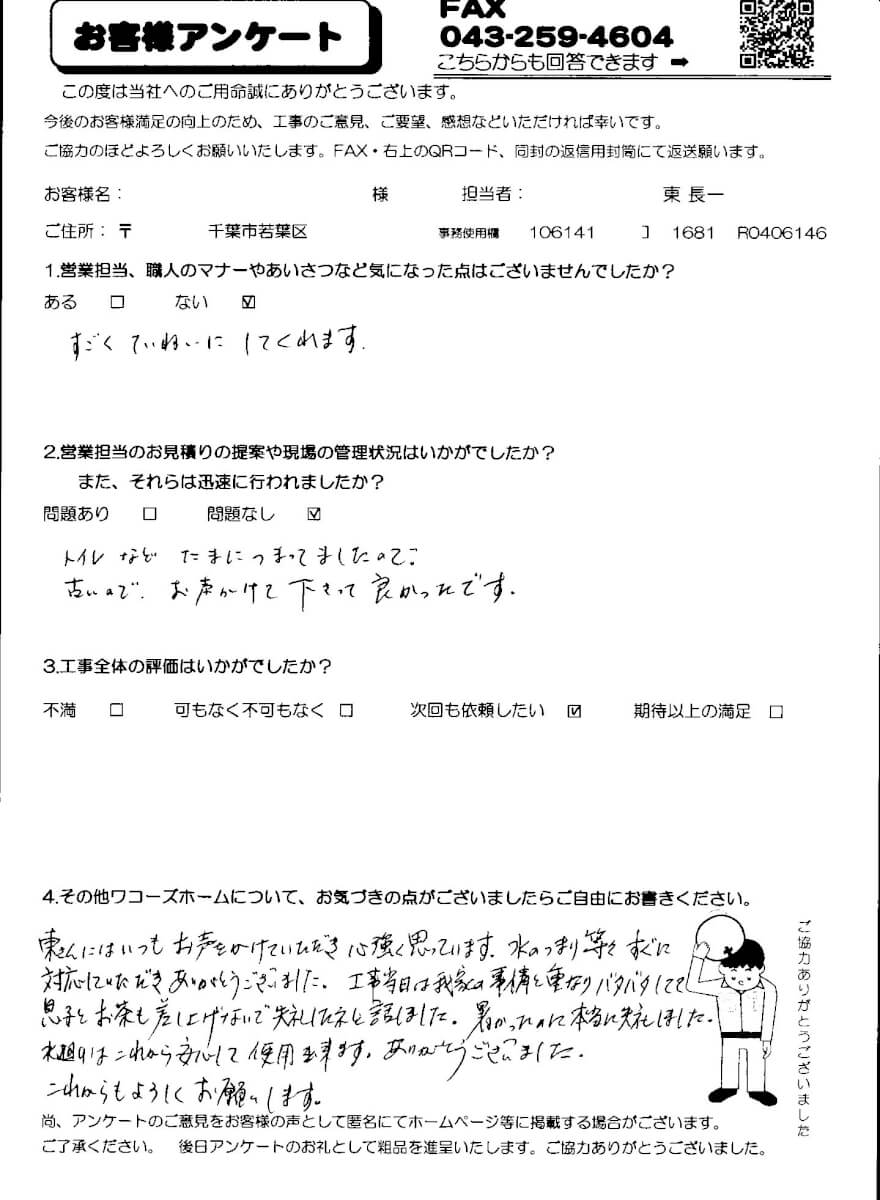 お客様アンケート
FAX
043-259-4604
こちらからも回答できます ➡
この度は当社へのご用命誠にありがとうございます。
今後のお客様満足の向上のため、工事のご意見、ご要望、感想などいただければ幸いです。
ご協力のほどよろしくお願いいたします。FAX・右上のQRコード、同封の返信用封筒にて返送願います。
お客様名: 様 担当者: 東 長一
ご住所: 〒 千葉市若葉区 事務使用欄 106141 ] 1681 R0406146
1.営業担当、職人のマナーやあいさつなど気になった点はございませんでしたか?
ある □ ない ☑
すごくていねいにしてくれます.
2.営業担当のお見積りの提案や現場の管理状況はいかがでしたか?
また、それらは迅速に行われましたか?
問題あり □ 問題なし ☑
トイレなど たまにつまってましたので.
古いので. お声かけて下さって良かったです.
3.工事全体の評価はいかがでしたか?
不満 □ 可もなく不可もなく □ 次回も依頼したい ☑ 期待以上の満足 □
4.その他ワコーズホームについて、お気づきの点がございましたらご自由にお書きください。
東さんにはいつもお声をかけていただき心強く思っています. 水のつまり等々すぐに
対応していただきありがとうございました. 工事当日は我家の事情と重なりバタバタしてて
息子とお茶も差し上げないで失礼したネと話しました. 暑かったのに本当に失礼しました.
水廻りはこれから安心して使用出来ます. ありがとうございました.
これからもよろしくお願いします。
ご協力ありがとうございました
尚、アンケートのご意見をお客様の声として匿名にてホームページ等に掲載する場合がございます。
ご了承ください。 後日アンケートのお礼として粗品を進呈いたします。ご協力ありがとうございました。